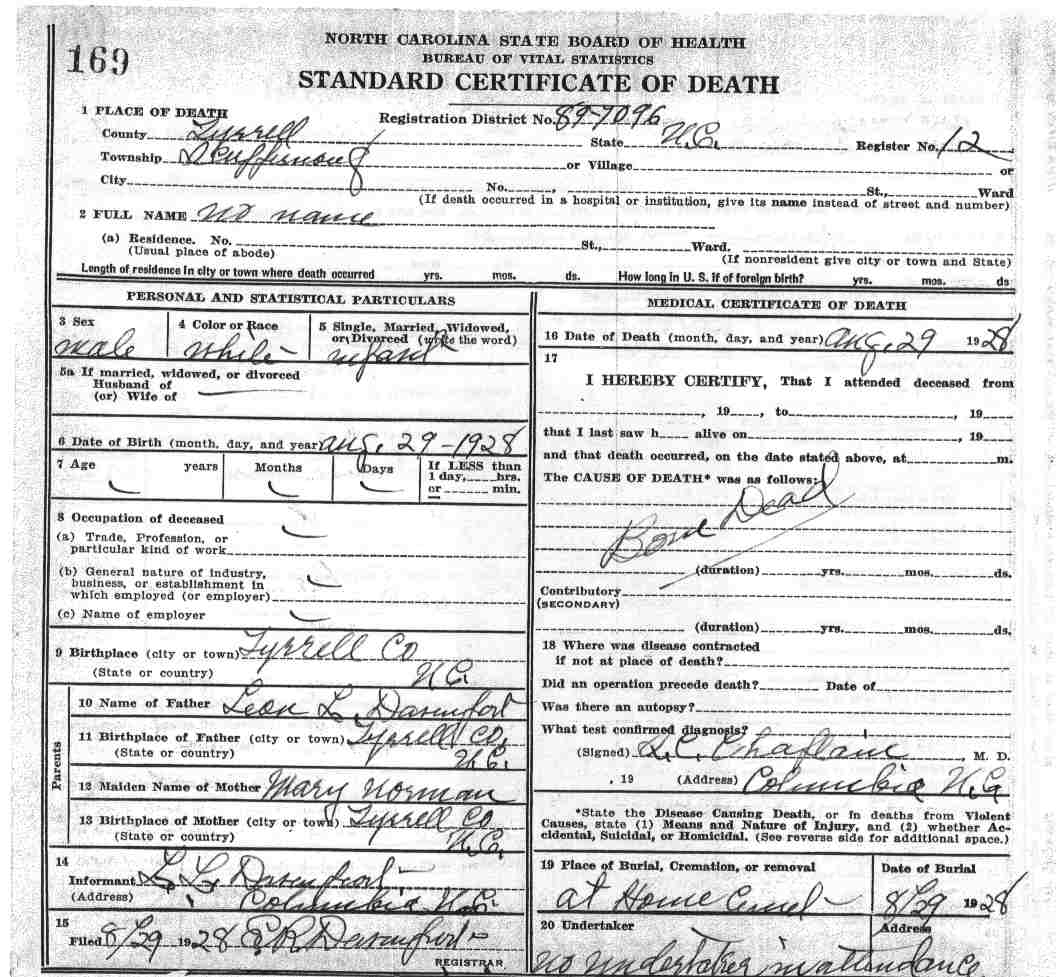 169
NORTH CAROLINA STATE BOARD OF HEALTH
BUREAU OF VITAL STATISTICS
STANDARD CERTIFICATE OF DEATH
1 PLACE OF DEATH Registration District No. 89-7096
County Tyrrell State N.C. Register No. 12
Township Scuppernong or Village or
City No. , St., Ward
(If death occurred in a hospital or institution, give its name instead of street and number)
2 FULL NAME no name
(a) Residence. No. St., Ward.
(Usual place of abode) (If nonresident give city or town and State)
Length of residence in city or town where death occurred yrs. mos. ds. How long in U. S. if of foreign birth? yrs. mos. ds
PERSONAL AND STATISTICAL PARTICULARS
3 Sex 4 Color or Race 5 Single, Married, Widowed,
or Divorced (write the word)
male white infant
5a If married, widowed, or divorced
Husband of
(or) Wife of
6 Date of Birth (month, day, and year) Aug. 29-1928
7 Age years Months Days If LESS than
1 day, hrs.
or min.
8 Occupation of deceased
(a) Trade, Profession, or
particular kind of work
(b) General nature of industry,
business, or establishment in
which employed (or employer)
(c) Name of employer
9 Birthplace (city or town) Tyrrell Co
(State or country) N.C.
Parents
10 Name of Father Leon L. Davenport
11 Birthplace of Father (city or town) Tyrrell Co,
(State or country) N.C.
12 Maiden Name of Mother Mary Norman
13 Birthplace of Mother (city or town) Tyrrell Co
(State or country) N.C.
14
Informant L. L. Davenport
(Address) Columbia N.C.
15
Filed 8/29 1928 Davenport
REGISTRAR
MEDICAL CERTIFICATE OF DEATH
16 Date of Death (month, day, and year) Aug. 29 1928
17
I HEREBY CERTIFY, That I attended deceased from
, 19 , to , 19
that I last saw h alive on , 19
and that death occurred, on the date stated above, at m.
The CAUSE OF DEATH* was as follows:
Born Dead
(duration) yrs. mos. ds.
Contributory
(SECONDARY)
(duration) yrs. mos. ds.
18 Where was disease contracted
if not at place of death?
Did an operation precede death? Date of
Was there an autopsy?
What test confirmed diagnosis?
(Signed) , M. D.
, 19 (Address) Columbia N.C.
*State the Disease Causing Death, or in deaths from Violent
Causes, state (1) Means and Nature of Injury, and (2) whether Ac-
cidental, Suicidal, or Homicidal. (See reverse side for additional space.)
19 Place of Burial, Cremation, or removal Date of Burial
at Home 8/29 1928
20 Undertaker Address
no undertaker in attendance